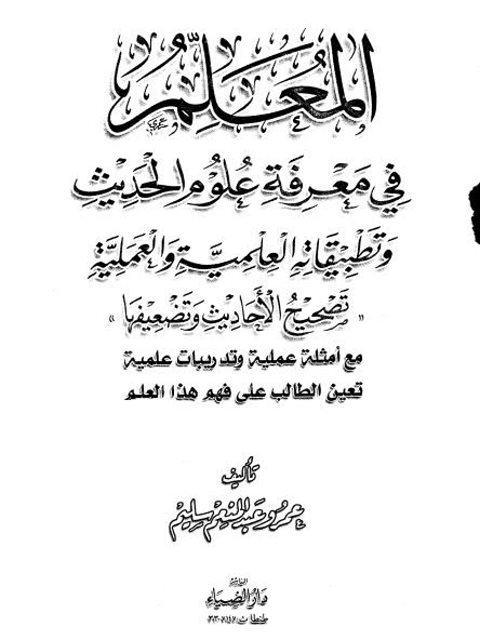 المُعَلِّمُ
فِي مَعْرِفَةِ عُلُومِ الْحَدِيثِ
وَتَطْبِيقَاتِهِ الْعِلْمِيَّةِ وَالْعَمَلِيَّةِ
« تَصْحِيحُ الْأَحَادِيثِ وَتَضْعِيفِهَا »
مع أمثلة عملية وتدريبات علمية
تعين الطالب على فهم هذا العلم
تأليف
عمرو عبد المنعم سليم
الناشر
دار الضياء
طنطا ت: